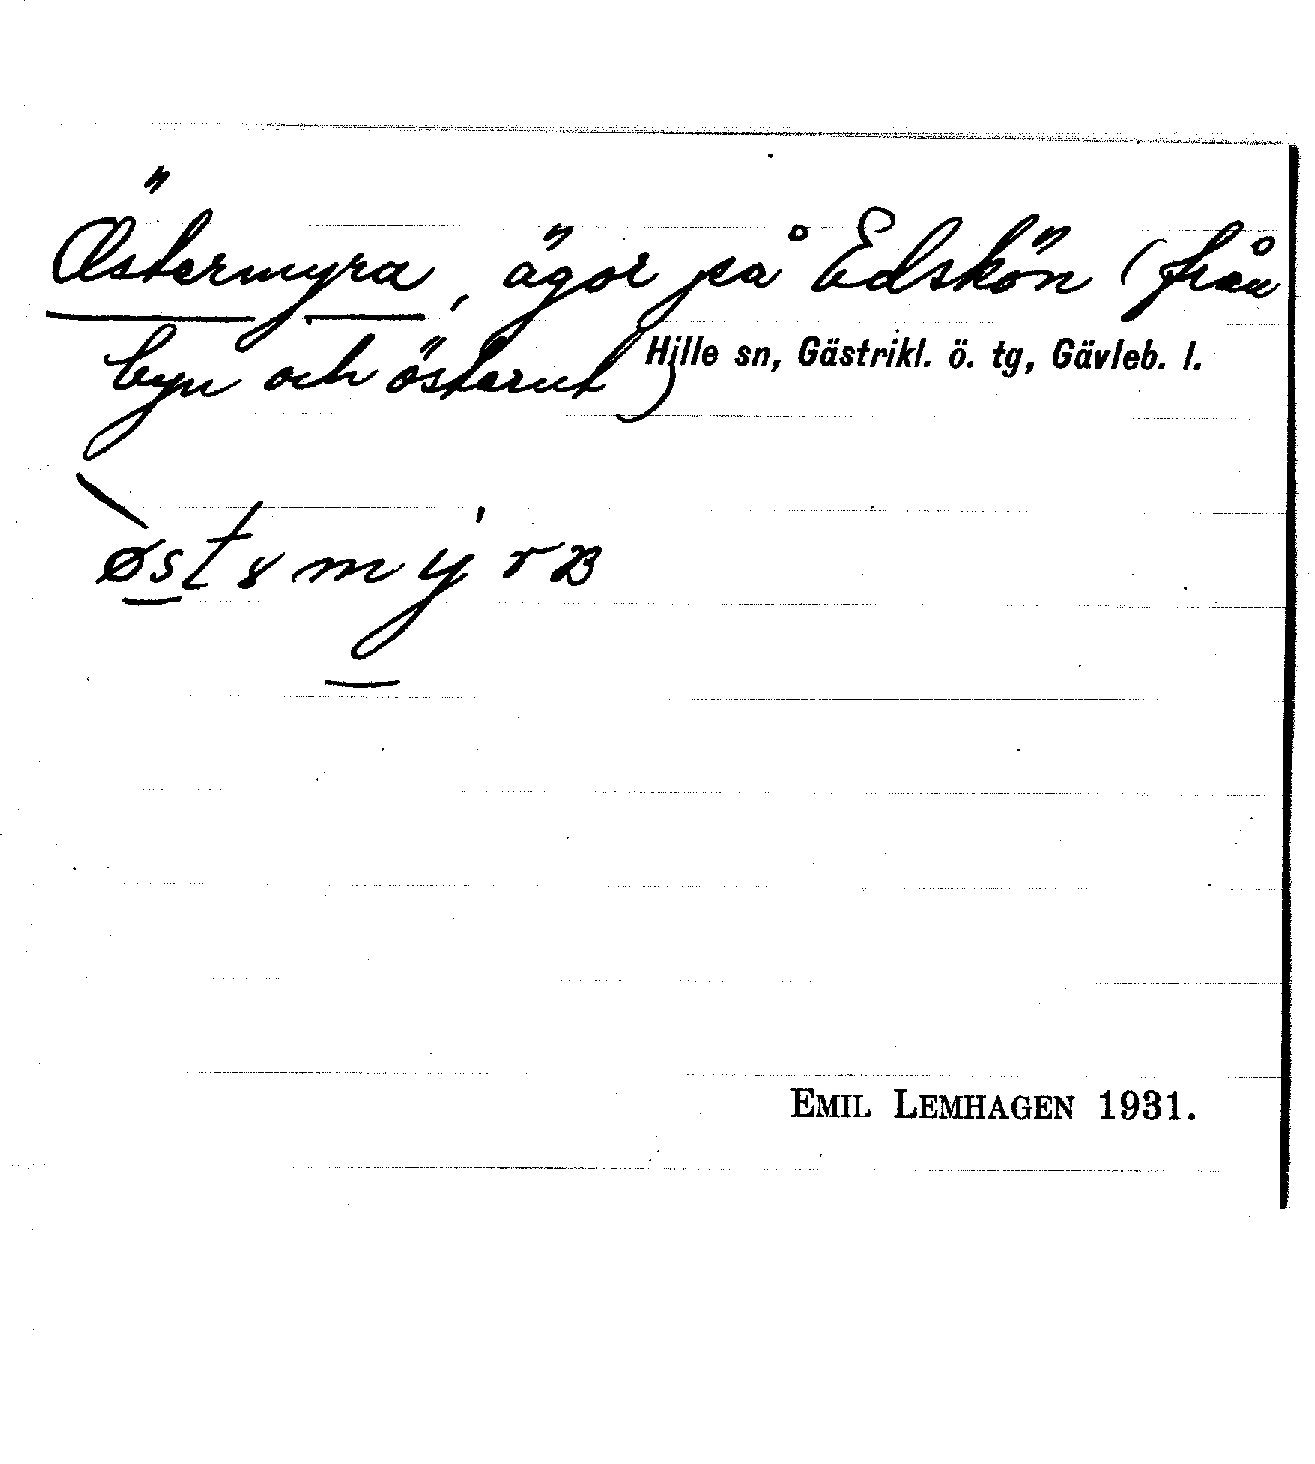 Östermyra, ägor på Edskön (från
byn och österut)
Hille sn, Gästrikl. ö. tg, Gävleb. l.
EMIL LEMHAGEN 1931.